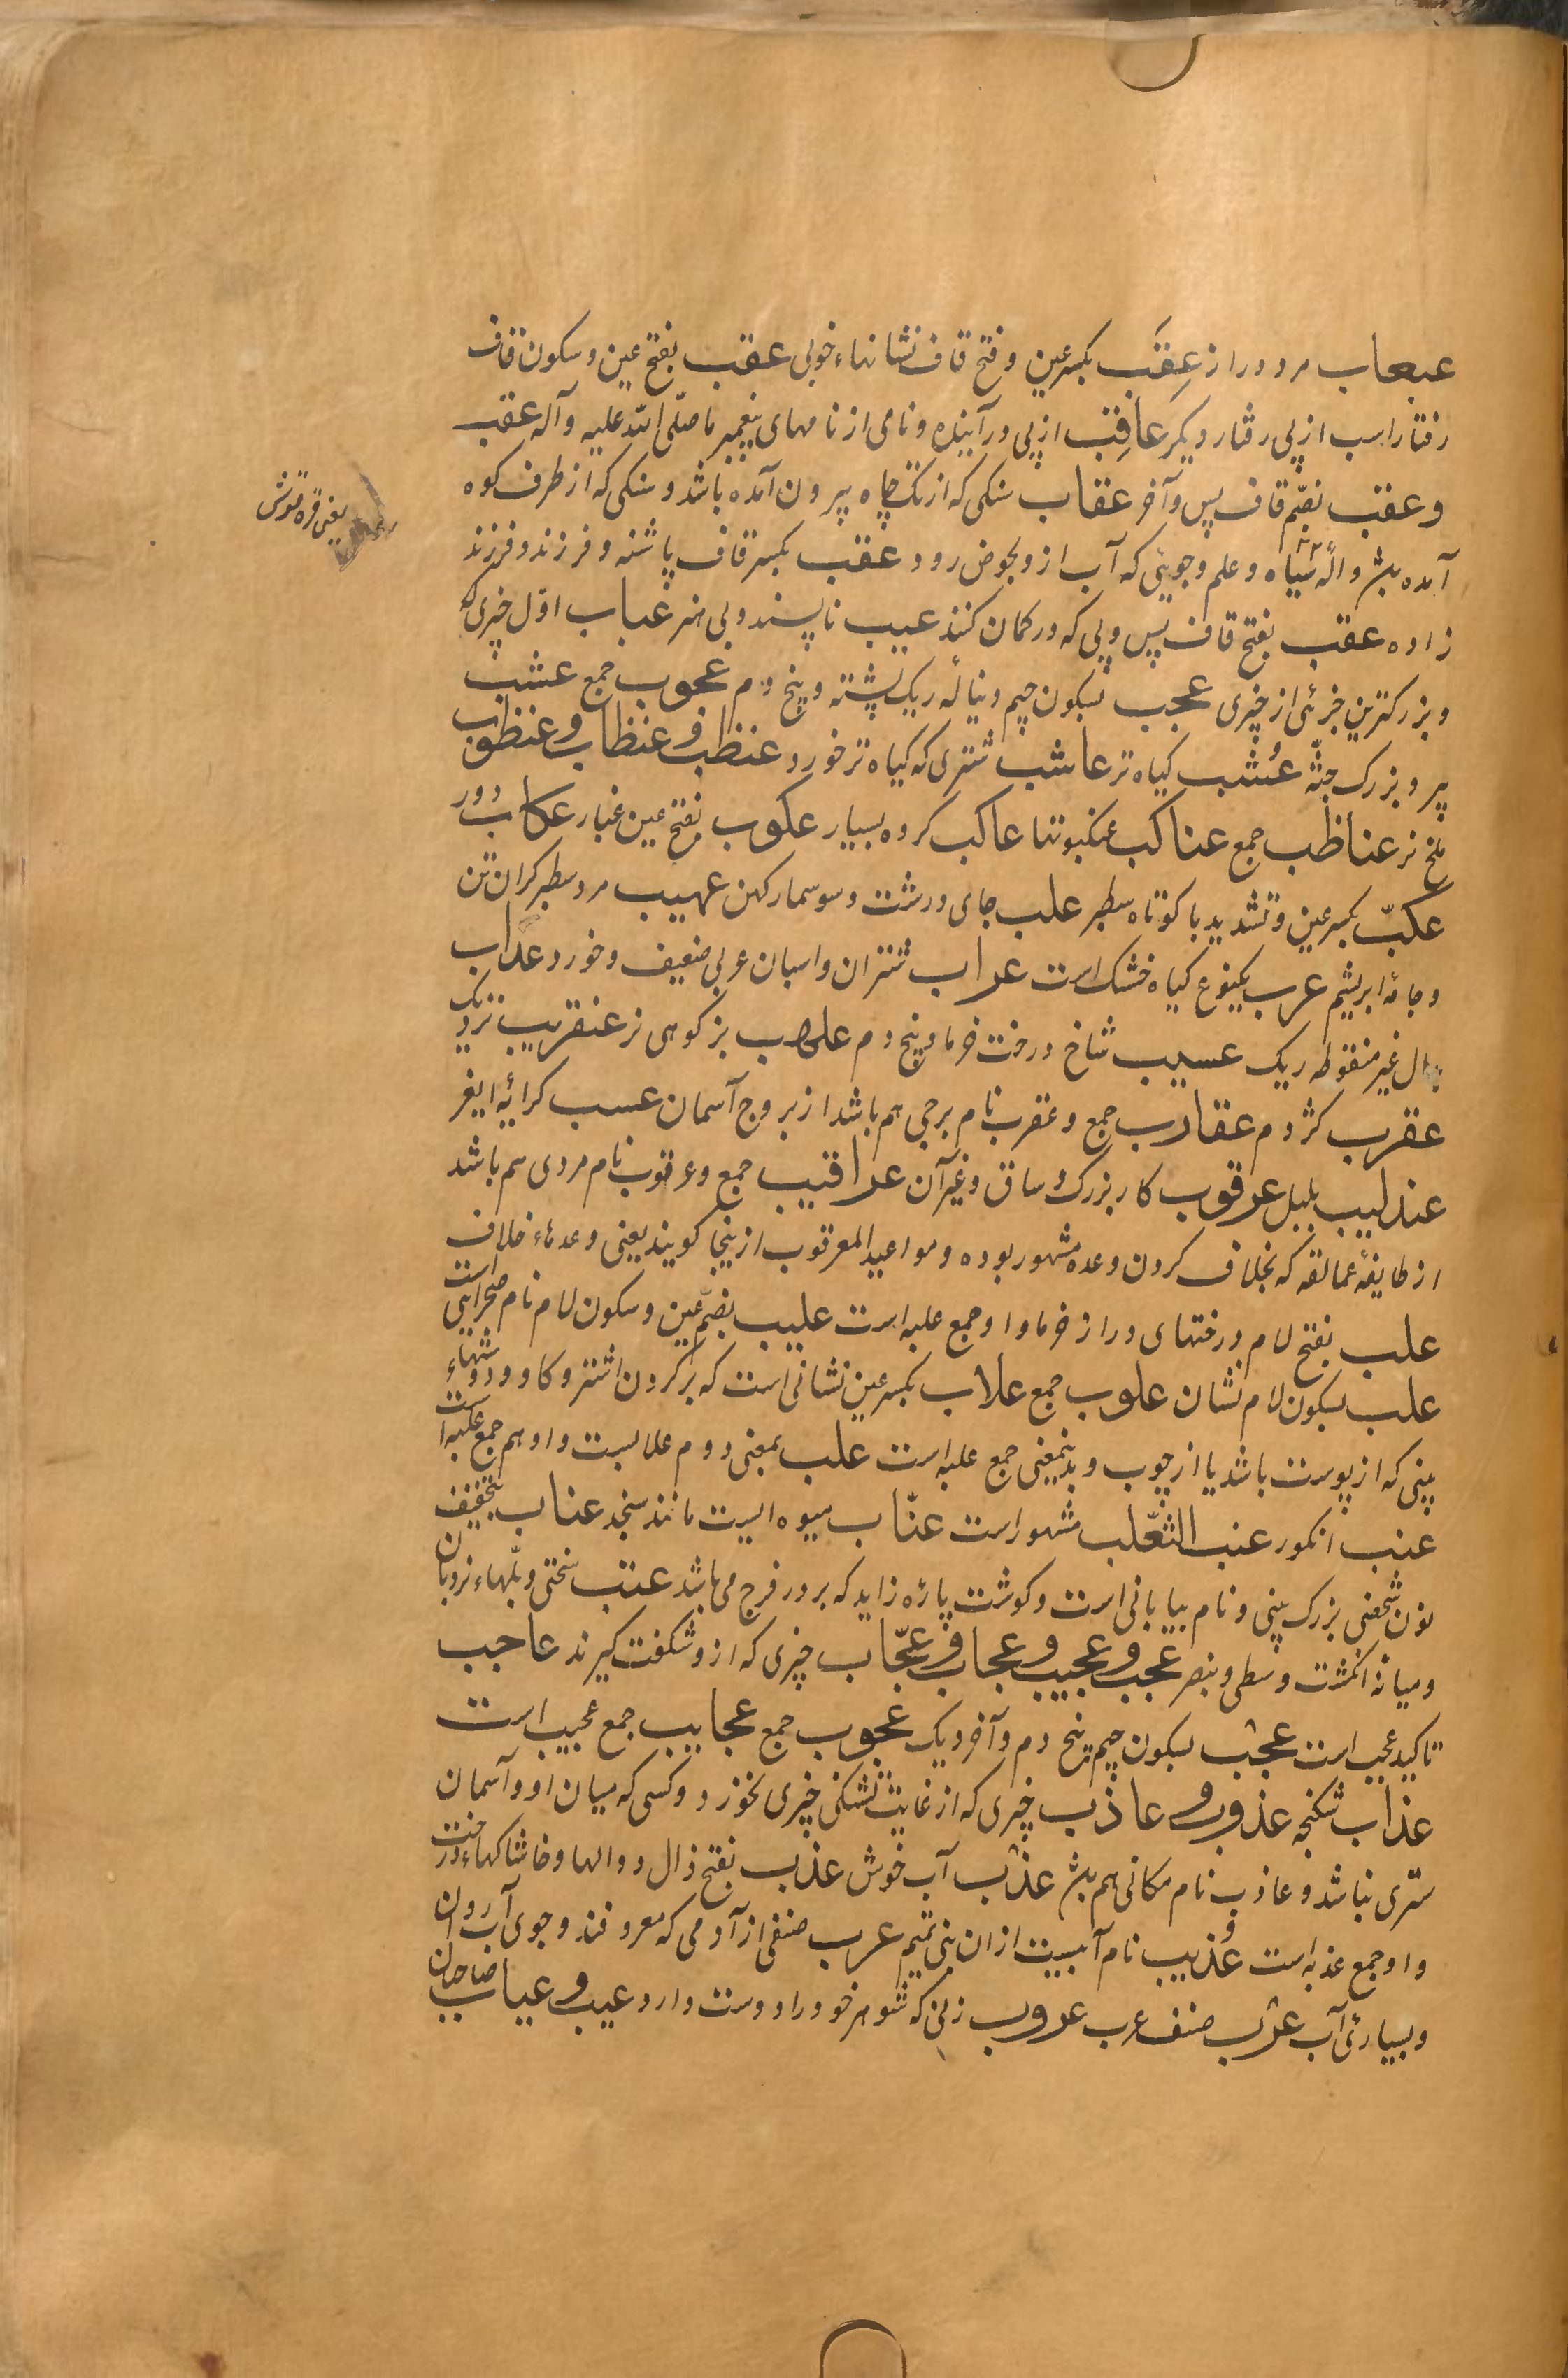 عبعاب مرد دراز عِقَب بکسر عین و فتح قاف نشانهاء خوبی عقب بفتح عین و سکون قاف
رفتار اسب از پی رفتار دیکر عاقِب از پی در آینده و نامی از نامهای پیغمبر ما صلّی الله علیه و آله عقب
و عقب بضمّ قاف پس و آخر عقاب سنکی که از تک چاه بیرون آمده باشد و سنکی که از طرف کوه
یعنی قره قوش
آمده بٰش و الٔه سیاه و علم و جویی که آب ازو بحوض رود عقب بکسر قاف پاشنه و فرزند و فرزند
زاده عقب بفتح قاف پس و پی که در کمان کنند عیب ناپسند و بی هنر عباب اوّل چیزی که
و بزرکترین جزئی از چیزی عجب بسکون جیم دنبالٔه ریک پشته و بیخ دم عجوب جمع عشب
پیر و بزرک جثّه عُشب کیاه تر عاشب شتری که کیاه تر خورد عنظب و عنظاب و عنظوب
ملخ نر عناظب جمع عناکب عنکبوتها عاکب کروه بسیار عکوب بفتح عین غبار عکاب دود
عکبّ بکسر عین و تشدید با کوتاه سطبر علب جای درشت و سوسمار کهن عهیب مرد سطبر کران تن
و جامٔه ابریشم عرب یکنوع کیاه خشک است عراب شتران و اسبان عربی ضعیف و خورد عداب
بدال غیر منقوطه ریک عسیب شاخ درخت خرما و بیخ دم علهب بز کوهی نر عنقریب نزدیک
عقرب کژدم عقارب جمع و عقرب نام برجی هم باشد از بروج آسمان عسب کرایٔه ایغر
عندلیب بلبل عرقوب کار بزرک و ساق و غیر آن عراقیب جمع و عرقوب نام مردی هم باشد
از طایفٔه عمالقه که بخلاف کردن وعده مشهور بوده و مواعید المعرقوب ازینجا کویند یعنی وعدهاء خلاف
علب بفتح لام درختهای دراز خرما و او جمع علبه است علیب بضمّ عین و سکون لام نام صحرایی است
علب بسکون لام نشان علوب جمع علاب بکسر عین نشانی است که بر کردن اشتر و کاو و دوشهاء
بینی که از پوست باشد یا از چوب و بدینمعنی جمع علبه است علب بمعنی دوم علابست و او هم جمع علبه است
عنب انکور عنب الثّعلب مشهور است عنّاب میوه ایست مانند سنجد عناب بتخفیف
نون شخصی بزرک بینی و نام بیابانی است و کوشت پارٔه زاید که بر در فرج می باشد عتب سختی و پلّهاء نردبان
و میانٔه انکشت وسطی و بنصر عجب و عجیب و عجاب و عجّاب چیزی که ازو شکفت کیرند عاجب
تاکید عجب است عجب بسکون جیم بیخ دم و آخر ریک عجوب جمع عجایب جمع عجیب است
عذاب شکنجه عذوب و عاذب چیزی که از غایت تشنکی چیزی نخورد و کسی که میان او و آسمان
ستری نباشد و عاذب نام مکانی هم بٰش عذب آب خوش عذب بفتح ذال دوالها و خاشاکهاء درخت
و او جمع عذبه است عُذیب نام آبیست ازان بنی تمیم عرب صنفی از آدمی که معروفند و جوی آب روان
و بسیارئ آب عرب صنف عرب عروب زنی که شوهر خود را دوست دارد عیب و عیاب صاحبان